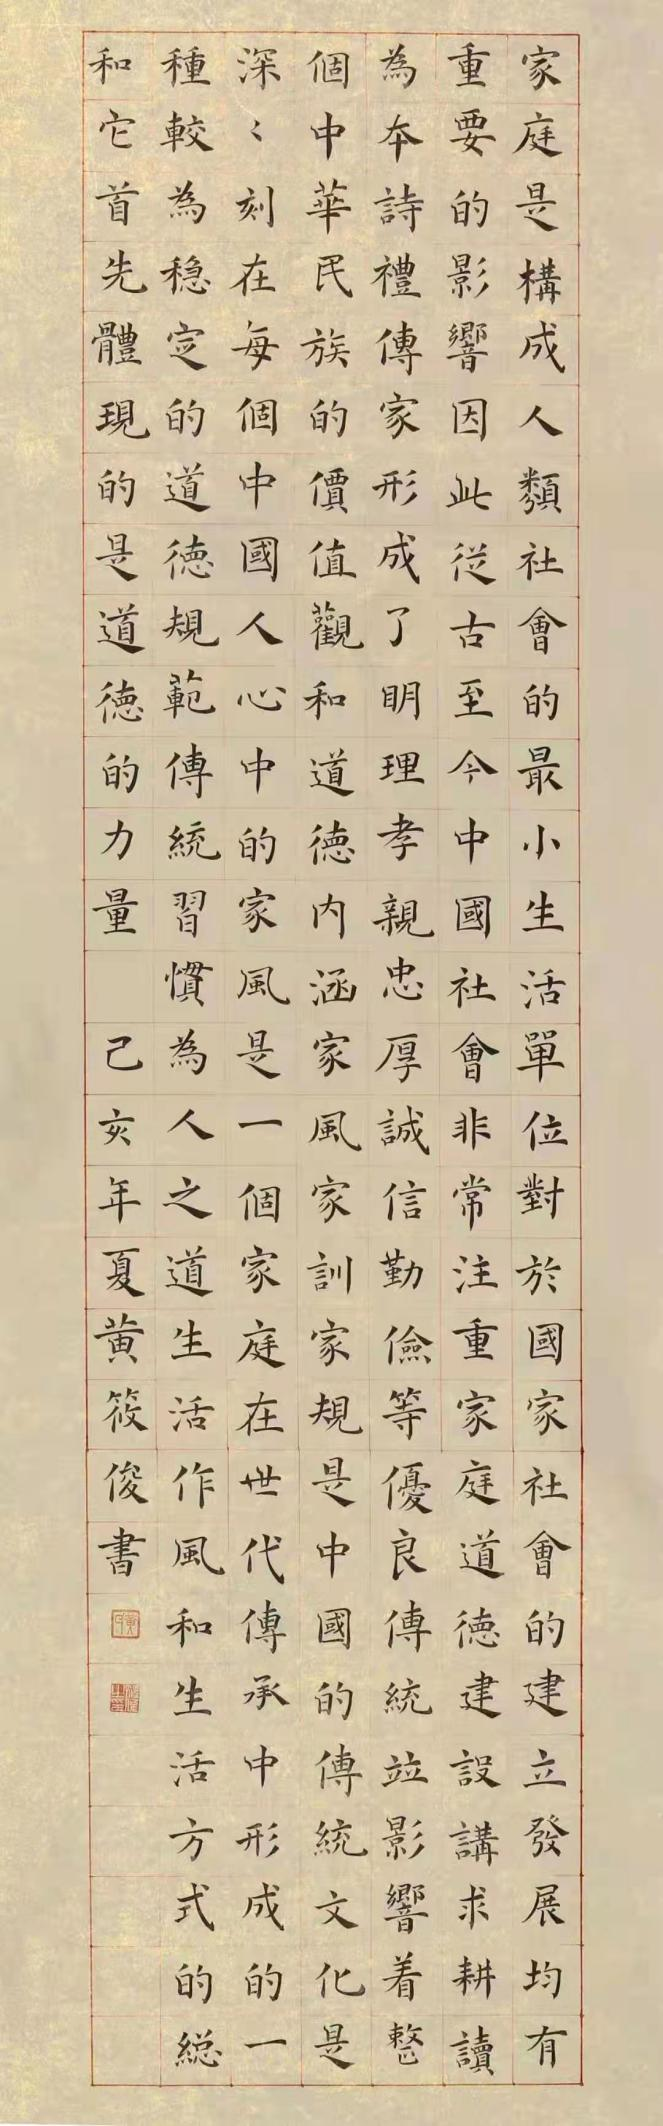 家庭是構成人類社會的最小生活單位對於國家社會的建立發展均有
重要的影響因此從古至今中國社會非常注重家庭道德建設講求耕讀
為本詩禮傳家形成了明理孝親忠厚誠信勤儉等優良傳統並影響着整
個中華民族的價值觀和道德內涵家風家訓家規是中國的傳統文化是
深〻刻在每個中國人心中的家風是一個家庭在世代傳承中形成的一
種較為穩定的道德規範傳統習慣為人之道生活作風和生活方式的總
和它首先體現的是道德的力量 己亥年夏黃筱俊書